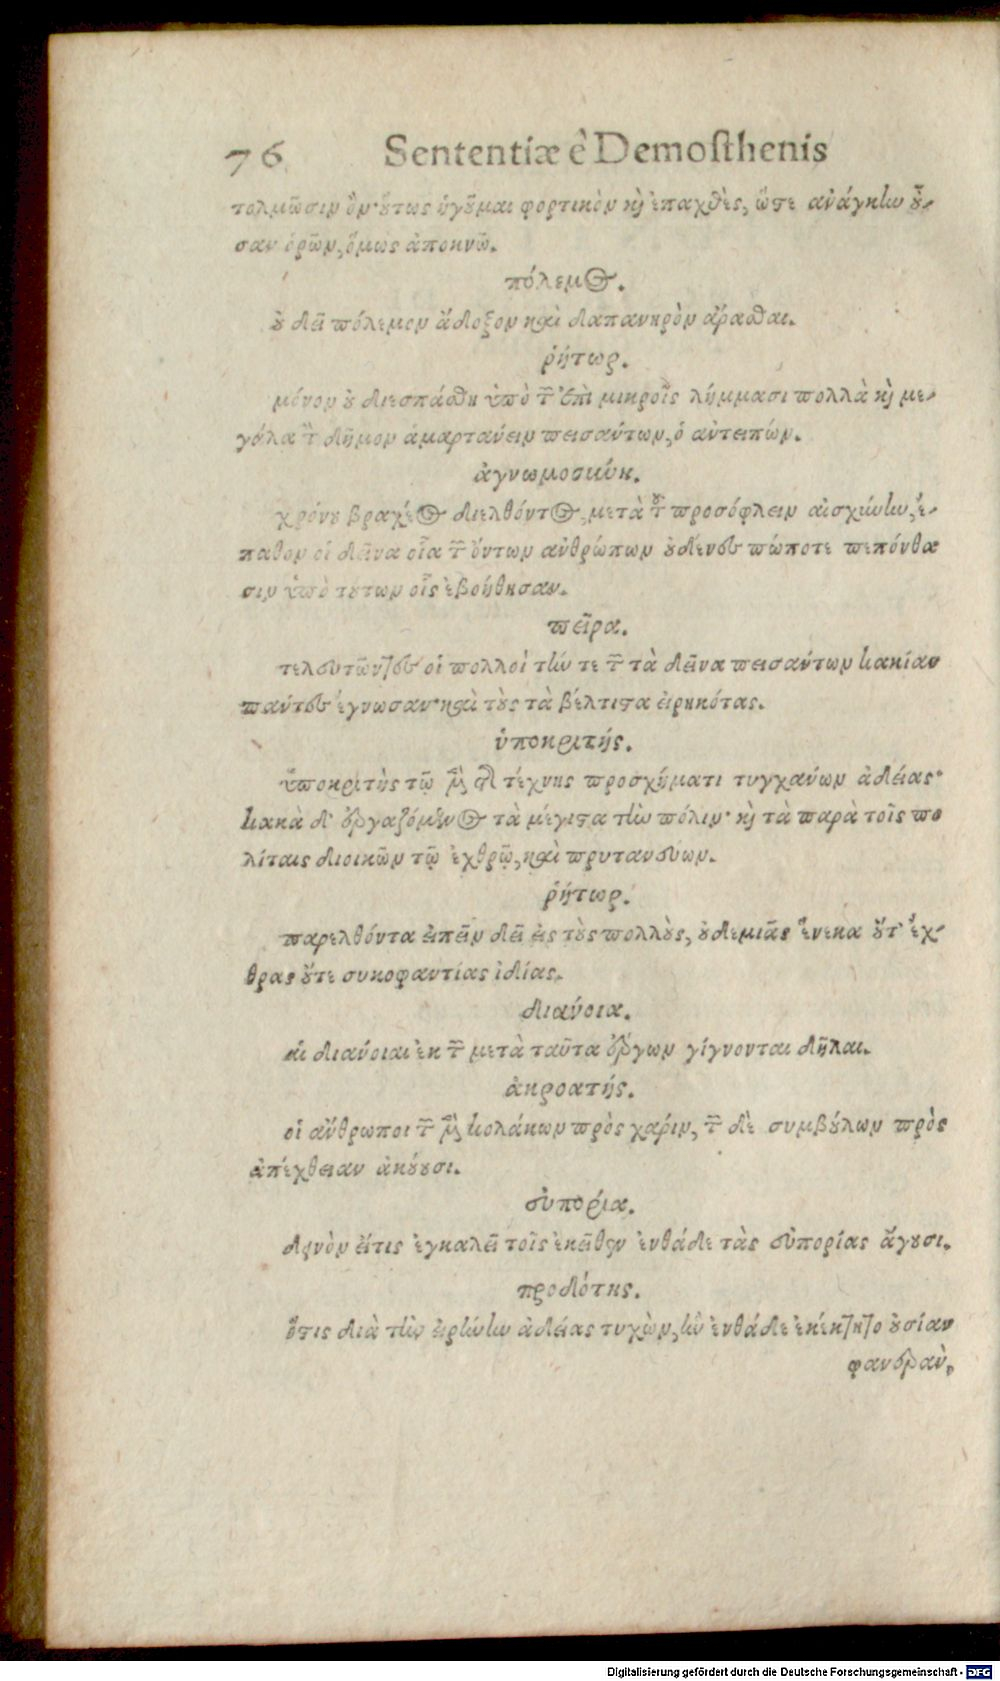 76 Sententiæ è Demosthenis
τολμῶσιν ὂν· οὕτως ἡγοῦμαι φορτικὸν καὶ ἐπαχθὲς, ὥστε ἀνάγκην οὖ-
σαν ὁρῶν, ὅμως ἀποκνῶ.
πόλεμος.
οὐ δεῖ πόλεμον ἄδοξον καὶ δαπανηρὸν ἄρασθαι.
ῥήτωρ.
μόνον οὐ διεσπάσθη ὑπὸ τῶν ἐπὶ μικροῖς λήμμασι πολλὰ καὶ με-
γάλα τὸν δῆμον ἁμαρτάνειν πεισάντων, ὁ ἀντειπών.
ἀγνωμοσύνη.
χρόνου βραχέος διελθόντος, μετὰ τοῦ προσόφλειν αἰσχύνην, ἔ-
παθον οἱ δεῖνα οἷα τῶν ὄντων ἀνθρώπων οὐδένες πώποτε πεπόνθα
σιν ὑπὸ τούτων οἷς ἐβοήθησαν.
πεῖρα.
τελευτῶντες οἱ πολλοὶ τήν τε τῶν τὰ δεῖνα πεισάντων κακίαν
πάντες ἔγνωσαν· καὶ τοὺς τὰ βέλτιστα εἰρηκότας.
ὑποκριτής.
ὑποκριτὴς τῷ μὲν τῆς τέχνης προσχήματι τυγχάνων ἀδείας·
κακὰ δ' ἐργαζόμενος τὰ μέγιστα τὴν πόλιν· καὶ τὰ παρὰ τοῖς πο
λίταις διοικῶν τῷ ἐχθρῷ, καὶ πρυτανεύων.
ῥήτωρ.
παρελθόντα εἰπεῖν δεῖ εἰς τοὺς πολλοὺς, οὐδεμιᾶς ἕνεκα οὔτ' ἔχ-
θρας οὔτε συκοφαντίας ἰδίας.
διάνοια.
αἱ διάνοιαι ἐκ τῶν μετὰ ταῦτα ἔργων γίγνονται δῆλαι.
ἀκροατής.
οἱ ἄνθρωποι τῶν μὲν κολάκων πρὸς χάριν, τῶν δὲ συμβούλων πρὸς
ἀπέχθειαν ἀκούουσι.
εὐπορία.
δεινὸν εἴτις ἐγκαλεῖ τοῖς ἐκεῖθεν ἐνθάδε τὰς εὐπορίας ἄγουσι.
προδότης.
ὅστις διὰ τὴν εἰρήνην ἀδείας τυχὼν, ἣν ἐνθάδε ἐκέκτητο οὐσίαν
φανερὰν,
Digitalisierung gefördert durch die Deutsche Forschungsgemeinschaft - DFG